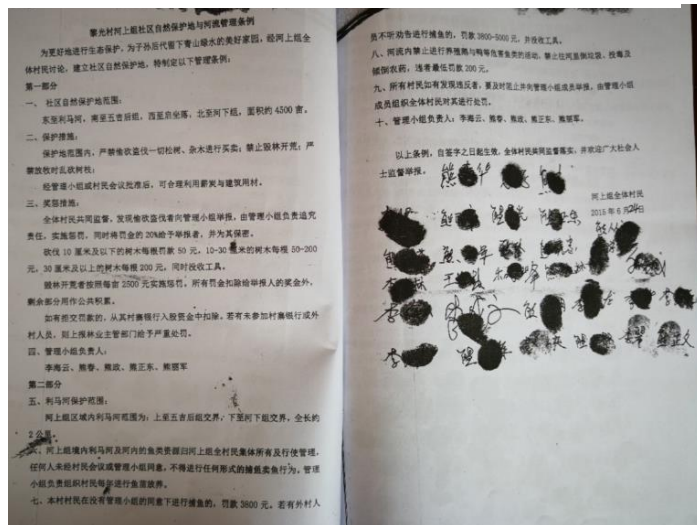 黎光村河上组社区自然保护地与河流管理条例
为更好地进行生态保护，为子孙后代留下青山绿水的美好家园，经河上组全
体村民讨论，建立社区自然保护地，特制定以下管理条例：
第一部分
一、 社区自然保护地范围：
东至利马河，南至五吉后组，西至启坐落，北至河下组，面积约4500亩。
二、保护措施：
保护地范围内，严禁偷砍盗伐一切松树、杂木进行买卖；禁止毁林开荒；严
禁放牧时乱砍树枝；
经管理小组或村民会议批准后，可合理利用薪炭与建筑用材。
三、奖惩措施：
全体村民共同监督，发现偷砍盗伐者向管理小组举报，由管理小组负责追究
责任，实施惩罚，同时将罚金的20%给予举报者，并为其保密。
砍伐10厘米及以下的树木每根罚款50元，10-30厘米的树木每根50-200
元，30厘米及以上的树木每根200元，同时没收工具。
毁林开荒者按照每亩2500元实施惩罚。所有罚金扣除给举报人的奖金外，
剩余部分用作公共积累。
如有拒交罚款的，从其村寨银行入股资金中扣除。若有未参加村寨银行或外
村人员，则上报林业主管部门给予严重处罚。
四、管理小组负责人：
李海云、熊春、熊政、熊正东、熊丽军
第二部分
五、利马河保护范围：
河上组区域内利马河范围为，上至五吉后组交界，下至河下组交界，全长约
2公里。
六、河上组境内利马河及河内的鱼类资源归河上组全村民集体所有及行使管理，
任何人未经村民会议或管理小组同意，不得进行任何形式的捕鱼卖鱼行为，管理
小组负责组织村民每年进行鱼苗放养。
七、本村村民在没有管理小组的同意下进行捕鱼的，罚款3800元。若有外村人
员不听劝告进行捕鱼的，罚款3800-5000元，并没收工具。
八、河流内禁止进行养殖鹅与鸭等危害鱼类的活动，禁止往河里倒垃圾、投毒及
倾倒农药，违者最低罚款200元。
九、所有村民如有发现违反者，要及时阻止并向管理小组成员举报，由管理小组
成员组织全体村民对其进行处罚。
十、管理小组负责人：李海云、熊春、熊政、熊正东、熊丽军。
以上条例，自签字之日起生效，全体村民共同监督落实，并欢迎广大社会人
士监督举报。
河上组全体村民
2015年6月24日